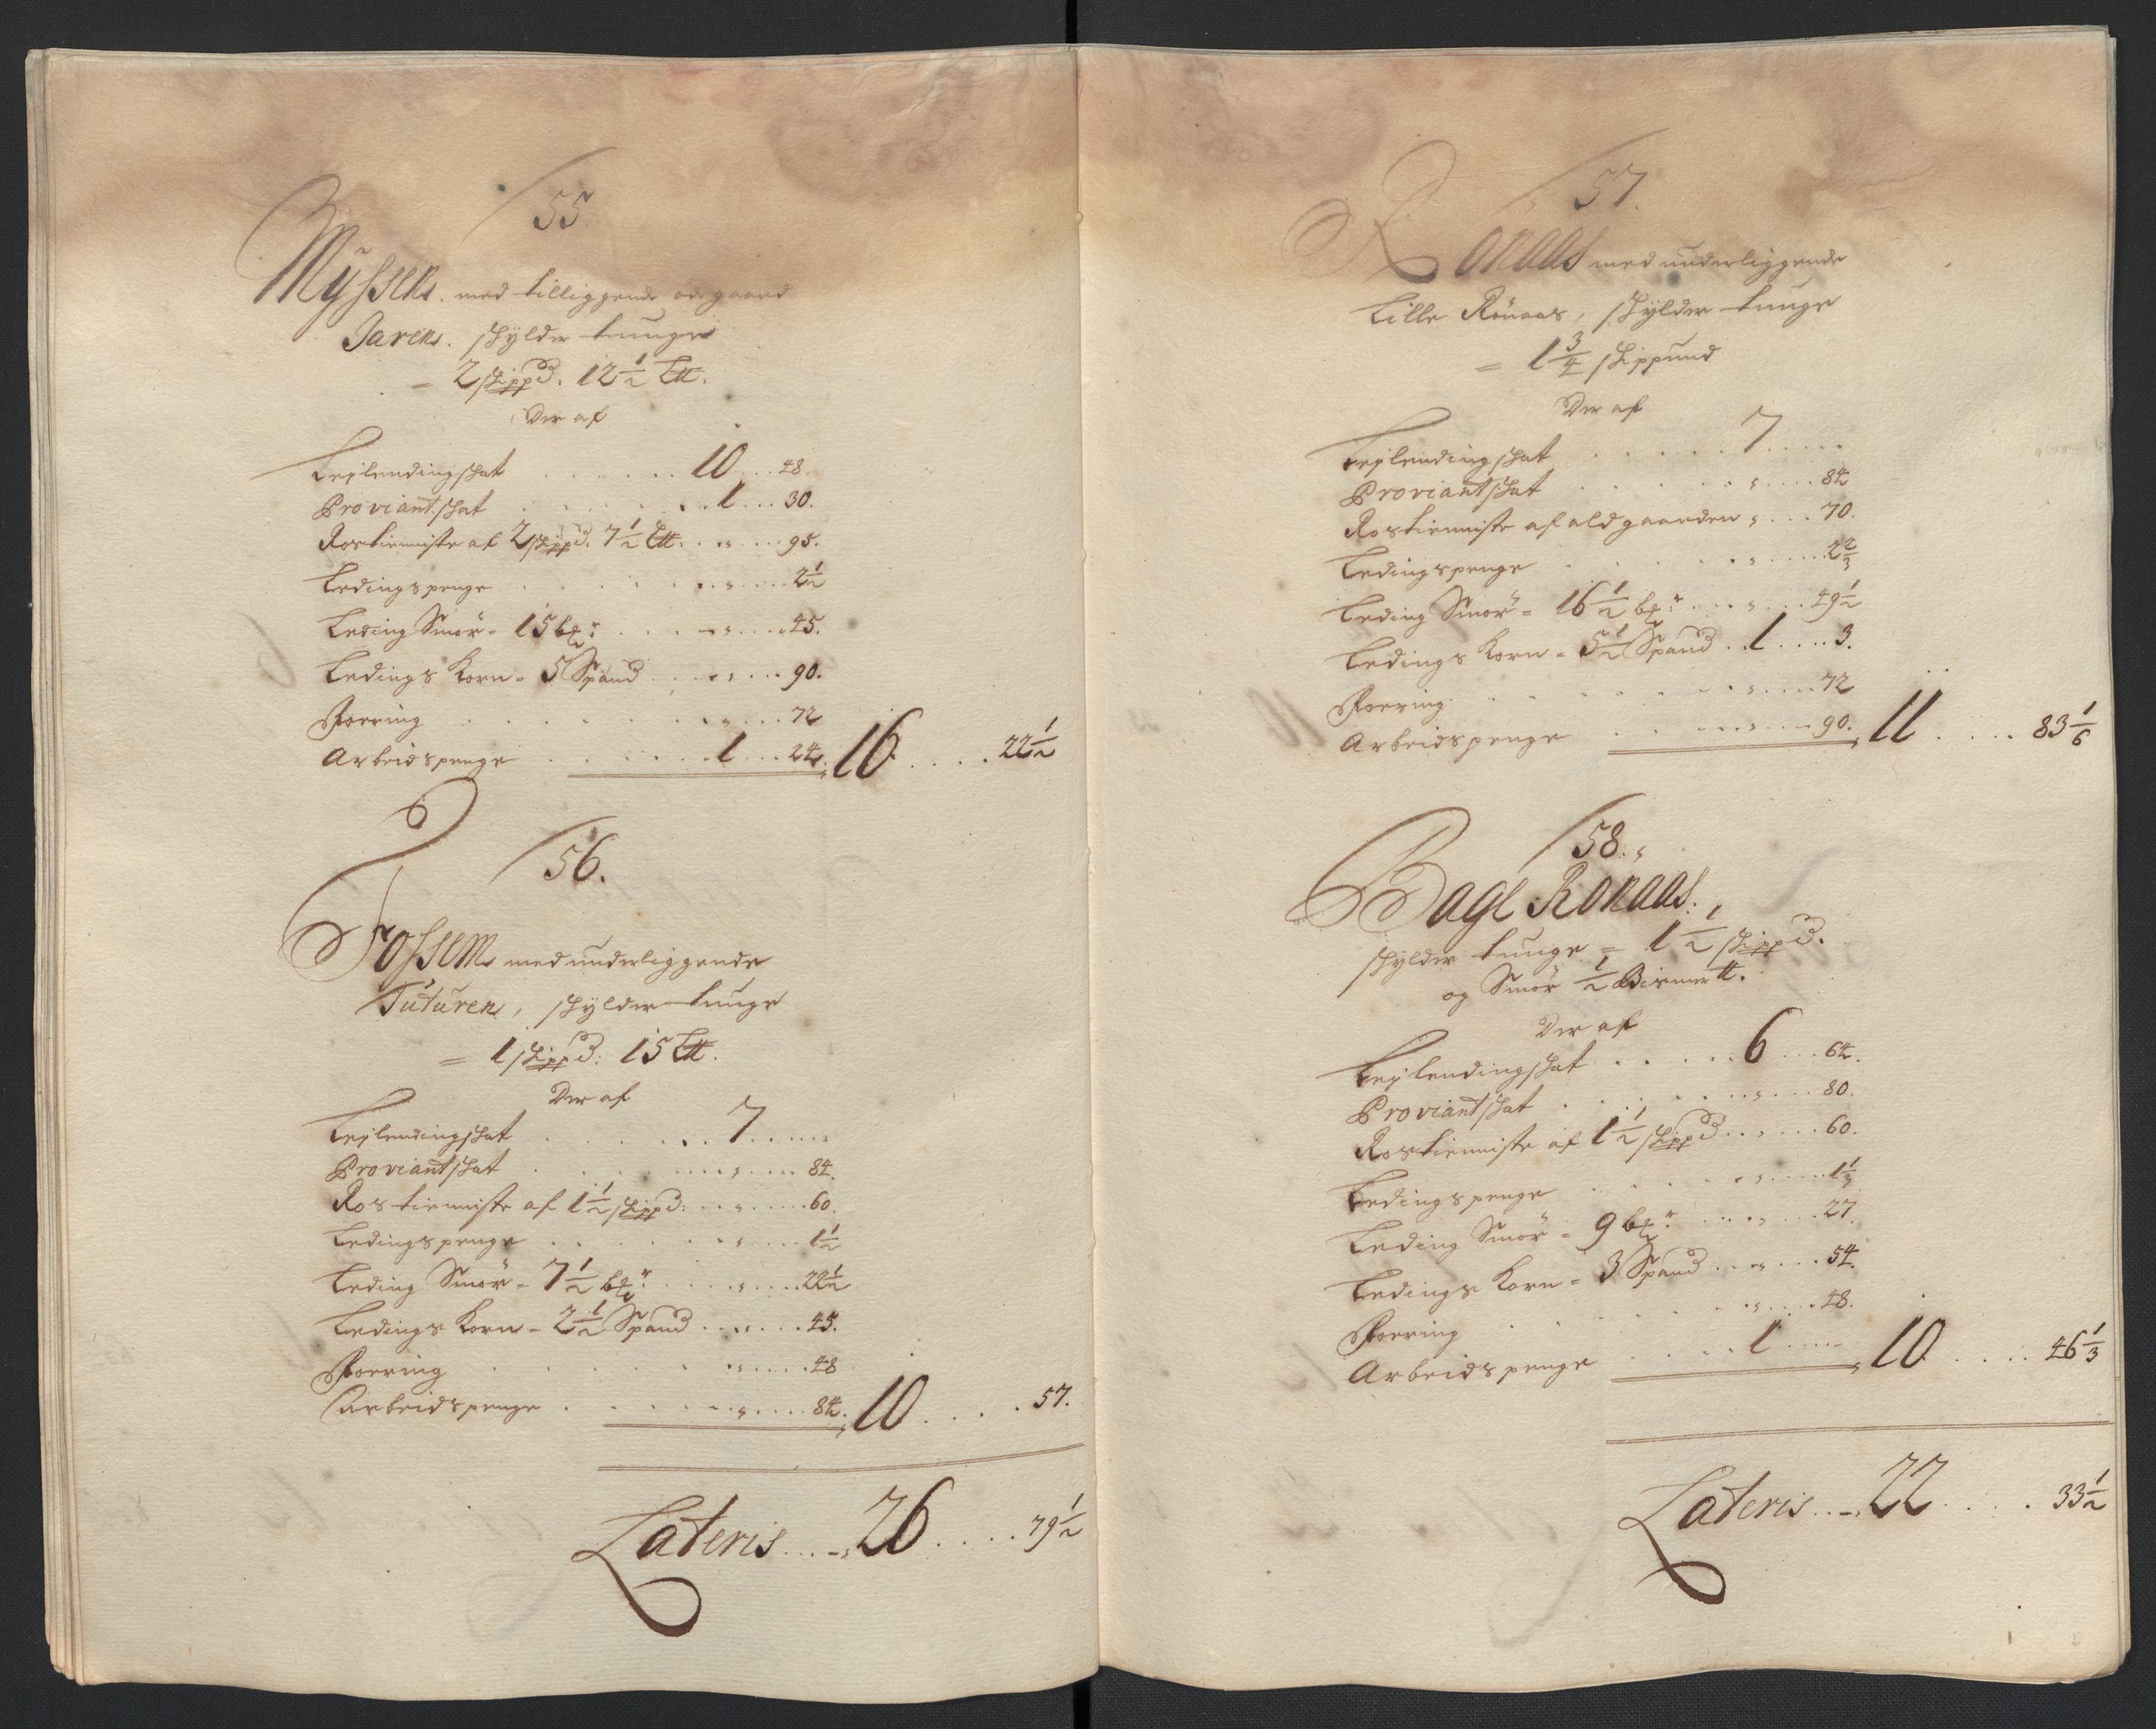 55.
Myssen. med tilliggende ødegaard
Jaren. skylder tunge
= 2 skippd. 12½ L℔.
Der af
Lejlendingskat . . . 10 . . 48.
Proviantskat . . . 1 . . 30.
Rostienniste af 2 skippd. 7½ L℔. . . „ . . 95.
Ledingspenge . . . „ . . 2½
Leding Smör - 15 bɉr . . . „ . . 45.
Ledings Korn - 5 Spand . . . „ . . 90.
Foering . . . „ . . 72
Arbeidspenge . . . 1 . . 24. 16 . . . 22½
56.
Fossem med underliggende
Tuturen, skylder tunge
= 1 skippd: 15 L℔.
Der af
Lejlendingskat . . . 7 . . .
Proviantskat . . . „ . . 84.
Rostienniste af 1½ skippd: . . „ . . 60.
Ledingspenge . . . „ . . 1½
Leding Smör - 7½ bɉr . . . „ . . 22½
Ledings Korn - 2½ Spand . . . „ . . 45.
Foering . . . „ . . 48
Arbeidspenge . . . „ . . 84. 10 . . . 57.
Lateris . . 26 . . . 79½
57.
Ronaas med underliggende
Lille Rönaas, skylder tunge
= 1¾ skippund
Der af
Lejlendingskat . . . 7 . . .
Proviantskat . . . „ . . 84
Rostienniste af ald gaarden „ . . 70.
Ledingspenge . . . „ . . 2⅔
Leding Smör - 16½ bɉr . . . „ . . 49½
Ledings Korn - 5½ Spand . . 1 . . 3.
Foering . . . „ . . 72
Arbeidspenge . . . „ . . 90. 11 . . . 83⅙
58.
Bagl Ronaas.
skylder tunge = 1½ skippd.
og Smör ½ Bismer℔.
Der af
Lejlendingskat . . . 6 . . 64.
Proviantskat . . . „ . . 80.
Rostienniste af 1½ skippd . . „ . . 60.
Ledingspenge . . . „ . . 1⅓
Leding Smör - 9 bɉr . . . „ . . 27.
Ledings Korn - 3 Spand . . „ . . 54.
Foering . . . „ . . 48.
Arbeidspenge . . . 1 . . . 10 . . . 46⅓
Lateris . . 22 . . . 33½